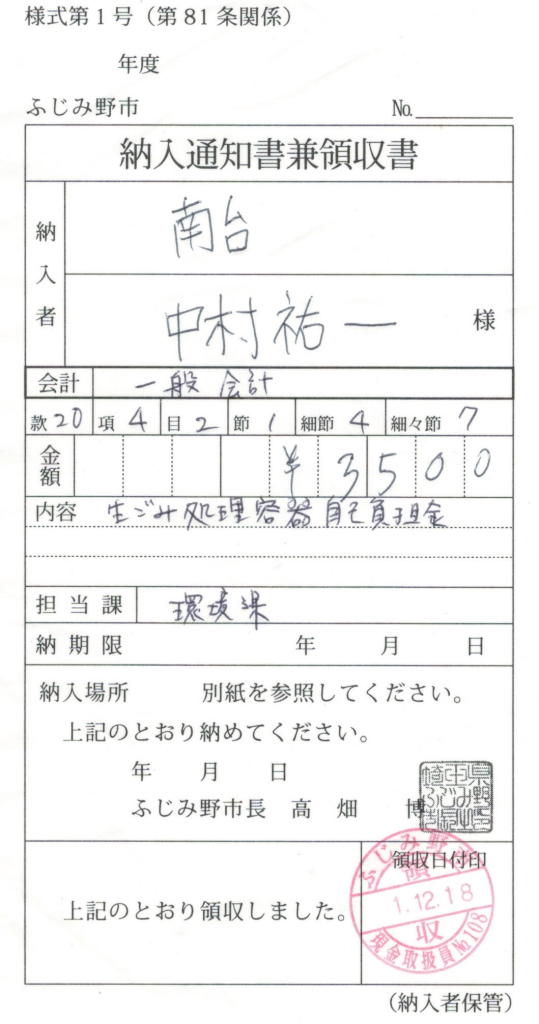 様式第1号（第81条関係）
年度
ふじみ野市 No.
納入通知書兼領収書
納入者
南台
中村祐一 様
会計 一般会計
款20 項4 目2 節1 細節4 細々節7
金額 ¥3500
内容 生ごみ処理容器自己負担金
担当課 環境課
納期限 年 月 日
納入場所 別紙を参照してください。
上記のとおり納めてください。
年 月 日
ふじみ野市長 高畑 博
埼玉県
ふじみ野
上記のとおり領収しました。
領収日付印
ふじみ野市
領
1.12.18
収
現金取扱員№108
（納入者保管）